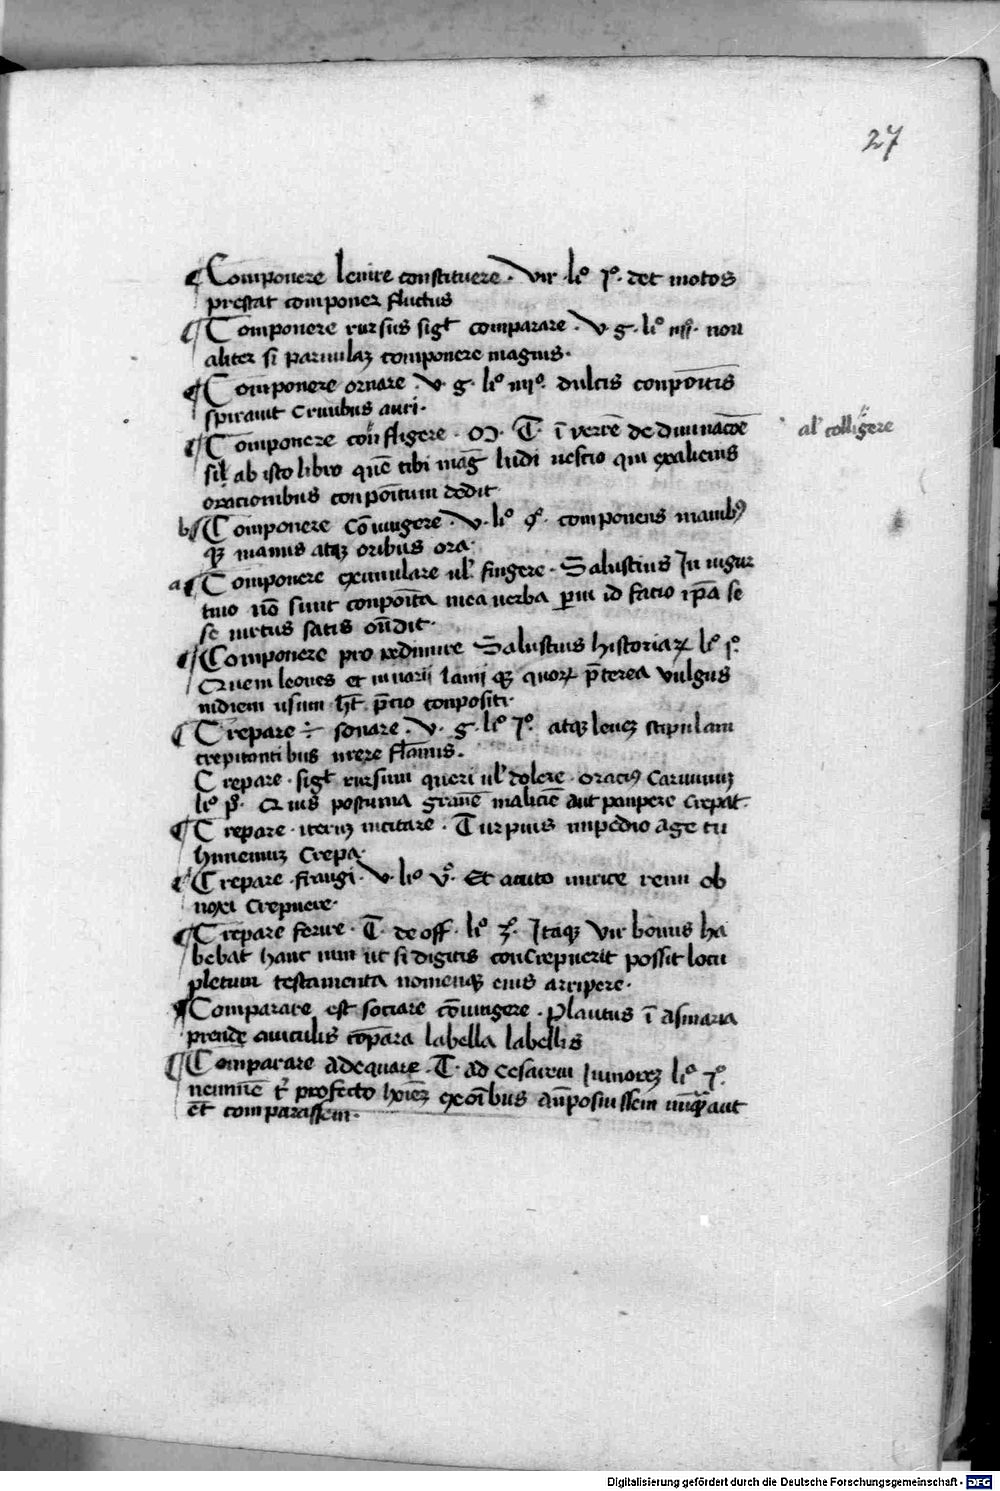 27
¶ Componere lenire constituere · Vir · li° 1°. det motos
prestat componeꝛ fluctus
¶ Componere rursus sigt comparare · V · g · li° iiij · non
aliter si paruulaʒ componere magnis ·
¶ Componere ornare · V · g · li° iiij° · dulcis conpoitis
spirauit crinibus auri ·
¶ Componere confligere · T · ī verrē de diuinacōe
sil ab isto libro quē tibi mag̅ ludi nescio qui ex alienis
oracionibus conpoitum dedit
al colligere
b ¶ Componere cōiungere · V · li° componens manibꝰ
qꝫ manus atqꝫ oribus ora ·
a ¶ Componere exinulare ul fingere · Salustius In iugur
tino nō sunt conpoita mea uerba pui id facio ipā se
se uirtus satis oñdit ·
¶ Componere pro redimire Salustius historiaꝝ li° 1°.
Quem leones et in uarij lanij qꝫ quoꝝ p̄terea vulgus
in diem usum ht p̄cio conpositi ·
¶ Crepare ÷ sonare · V · g · li° 1° · atqꝫ leueʒ stipulam
crepitantibus urere flāmis ·
Crepare · sigt rursum queri ul dolere · oraciꝰ carminuʒ
li° p° · Quis post uina grauē maliciē aut paupere crepat ·
¶ Crepare · iteruʒ incitare · Turpius impedio age tu
himeneuʒ crepa ·
¶ Crepare · frangi · V · li° v° · Et acuto murice remi ob
noxi crepuere ·
¶ Crepare ferire · T · de off · li° 3° · Itaqꝫ Vir bonus ha
bebat hanc uim ut si digitis concrepuerit possit locu
pletum testamenta nomenqꝫ eius arripere ·
¶ Comparare est sociare cōiungere · Plautus ī asinaria
prende auiculis cōpara labella labellis
¶ Comparare adequare · T · ad cesarem Iunioreʒ li° 1°.
neminē profecto hoieʒ ex oībus anposuissem nūqꝫ aut
et comparassem ·
Digitalisierung gefördert durch die Deutsche Forschungsgemeinschaft - DFG